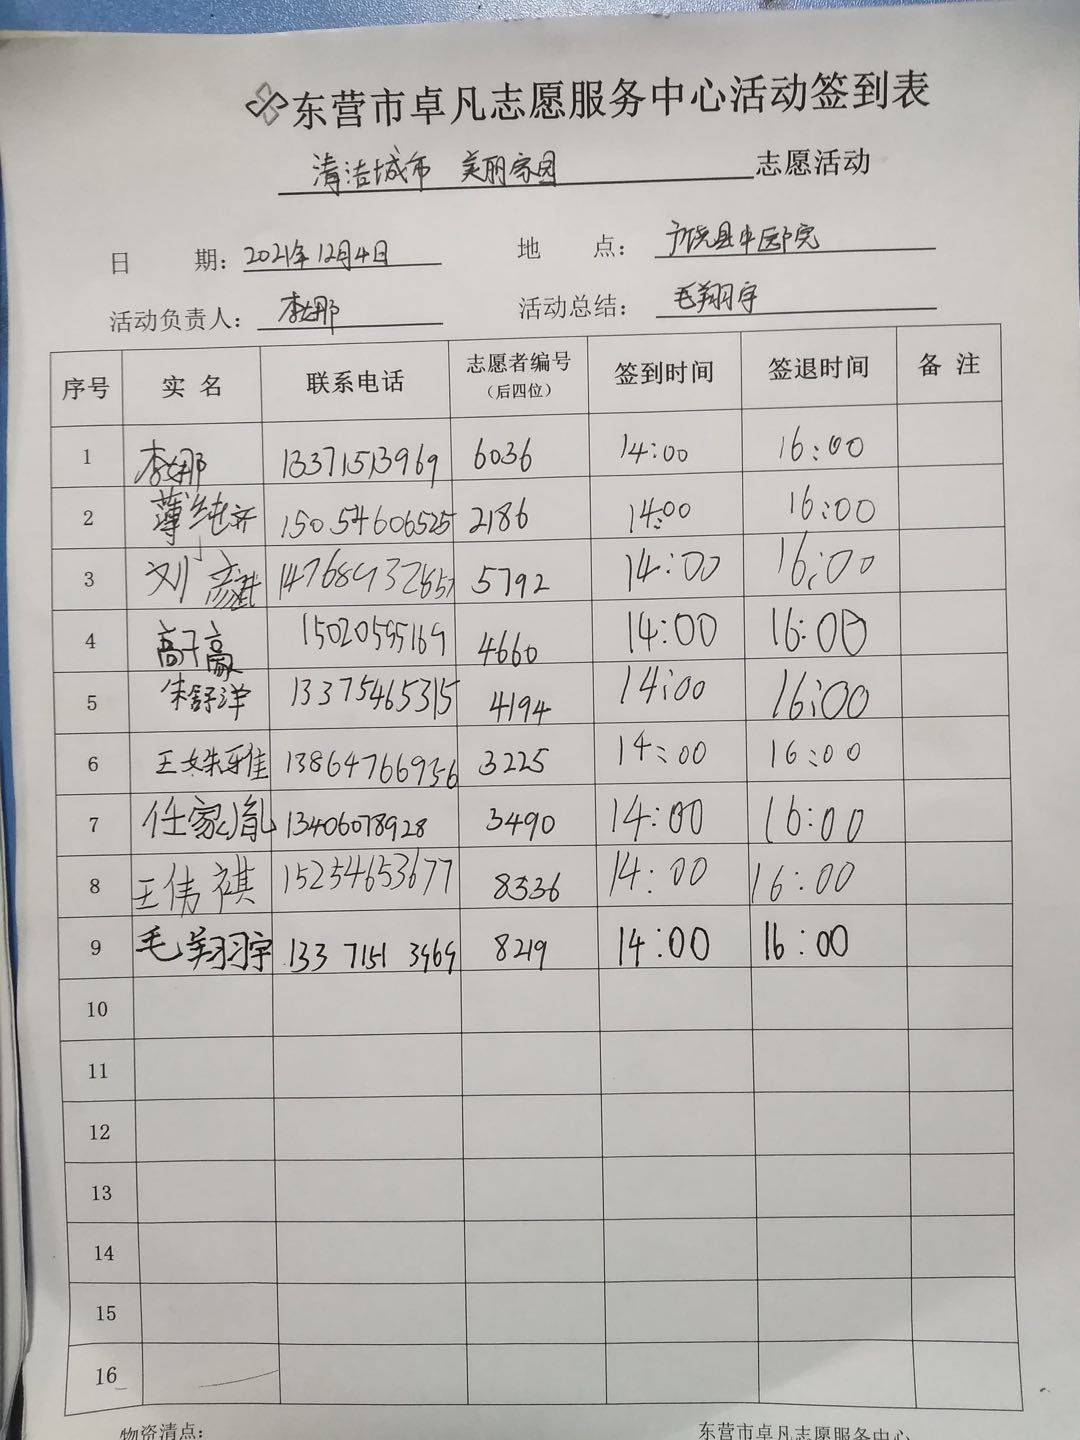 东营市卓凡志愿服务中心活动签到表
清洁城市 美丽家园 志愿活动
日 期: 2021年12月4日 地 点: 广饶县中医院
活动负责人: 李娜 活动总结: 毛翔宇
序号 实名 联系电话 志愿者编号(后四位) 签到时间 签退时间 备注
1 李娜 13371513969 6036 14:00 16:00
2 薄纯齐 15054606525 2186 14:00 16:00
3 刘彦斌 5792 14:00 16:00
4 高子豪 15020595169 4660 14:00 16:00
5 朱舒洋 13375465315 4194 14:00 16:00
6 王姝雅 13864766956 3225 14:00 16:00
7 任家胤 13406078928 3490 14:00 16:00
8 王伟祺 15254653677 8336 14:00 16:00
9 毛翔宇 133 7151 3969 8219 14:00 16:00
10
11
12
13
14
15
16
物资清点: 东营市卓凡志愿服务中心